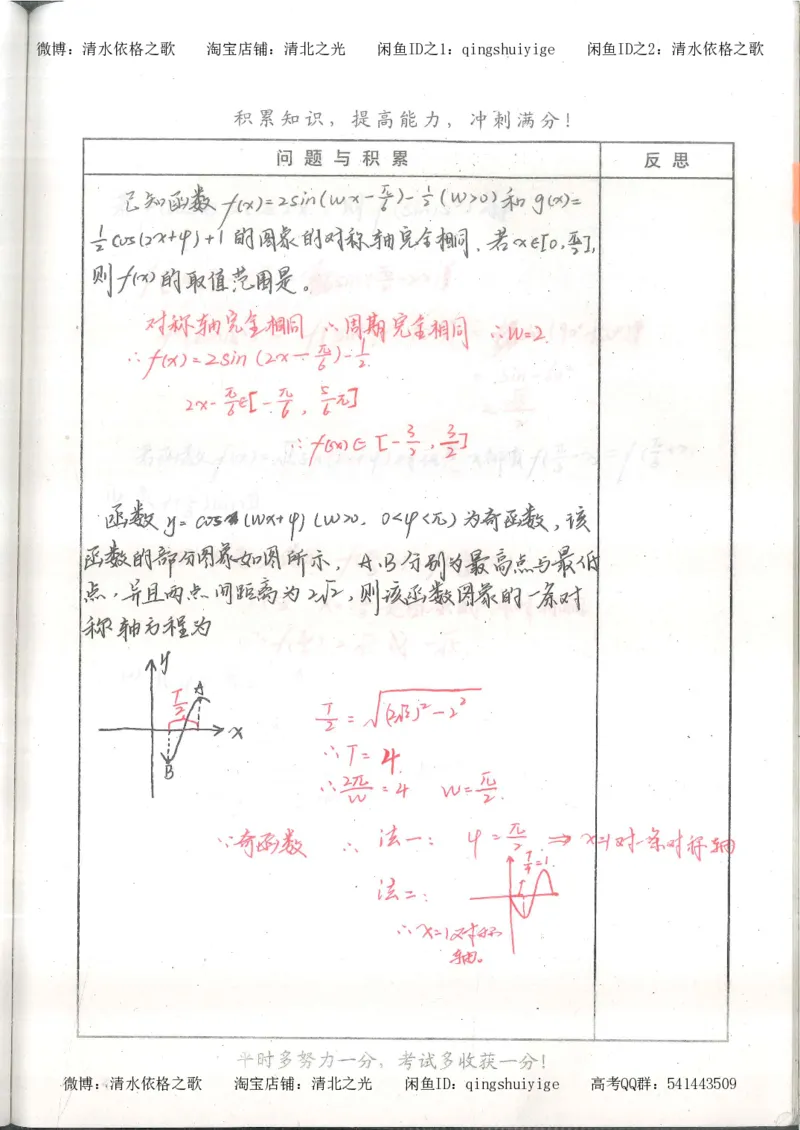 微博：清水依格之歌 淘宝店铺：清北之光 闲鱼ID之1：qingshuiyige 闲鱼ID之2：清水依格之歌
积累知识，提高能力，冲刺满分！
问题与积累 反思
已知函数 f(x)=2sin(wx-π/6)-1/2(w>0)和g(x)=
1/2cos(2x+φ)+1的图象的对称轴完全相同.若x∈[0,π/2],
则f(x)的取值范围是。
对称轴完全相同 ∴周期完全相同 ∴w=2
∴f(x)=2sin(2x-π/6)-1/2
2x-π/6∈[-π/6, 5/6π]
∴f(x)∈[-3/2, 3/2]
函数 y=cos(wx+φ)(w>0, 0<φ<π)为奇函数,该
函数的部分图象如图所示, A.B分别为最高点与最低
点.并且两点间距离为2√2,则该函数图象的一条对
称轴方程为
y
T/2 A
x
B
T/2=√(2√2)²-2²
∴T=4
∴2π/w=4 w=π/2.
∵奇函数 ∴ 法一: φ=π/2 ⇒ x=1对一条对称轴
T/4=1.
法二:
∴x=1对称
轴。
平时多努力一分，考试多收获一分！
微博：清水依格之歌 淘宝店铺：清北之光 闲鱼ID：qingshuiyige 高考QQ群：541443509